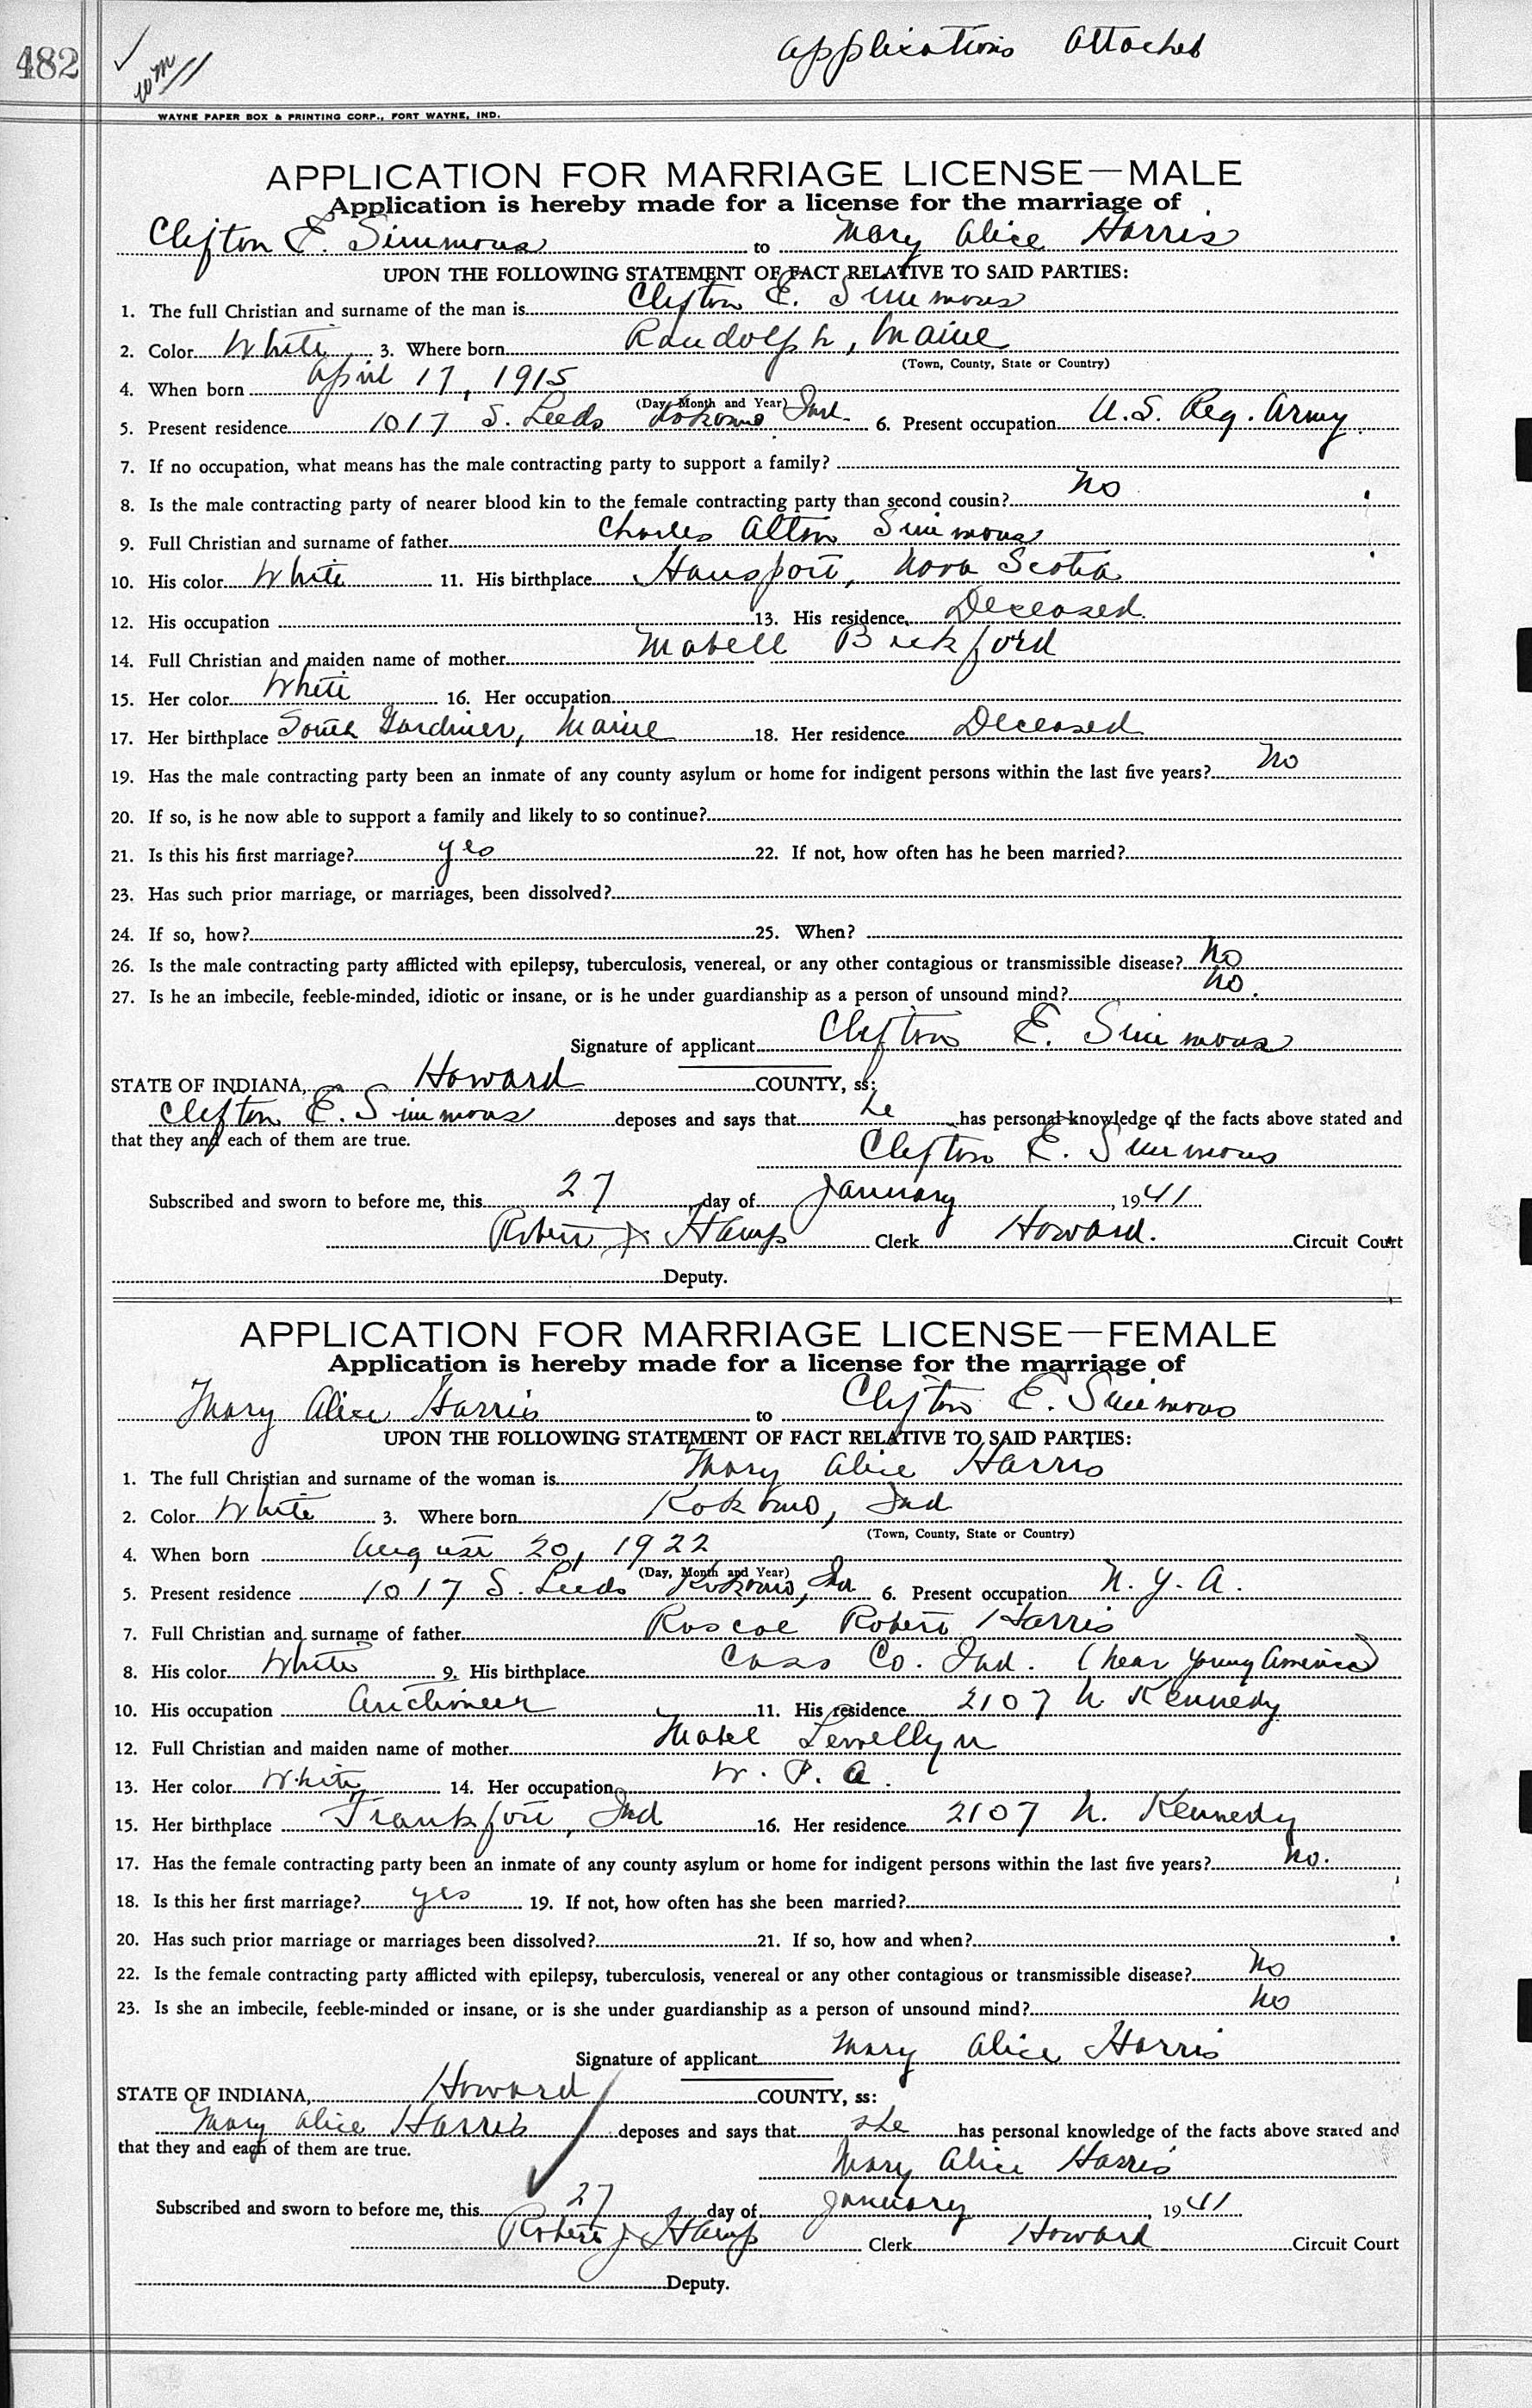 482
Applications Attached
WAYNE PAPER BOX & PRINTING CORP., FORT WAYNE, IND.
APPLICATION FOR MARRIAGE LICENSE—MALE
Application is hereby made for a license for the marriage of
Clifton E. Simmons to Mary Alice Harris
UPON THE FOLLOWING STATEMENT OF FACT RELATIVE TO SAID PARTIES:
1. The full Christian and surname of the man is Clifton E. Simmons
2. Color White 3. Where born Randolph, Maine
(Town, County, State or Country)
4. When born April 17, 1915
(Day, Month and Year)
5. Present residence 1017 S. Leeds Kokomo Ind. 6. Present occupation U.S. Reg. Army.
7. If no occupation, what means has the male contracting party to support a family?
8. Is the male contracting party of nearer blood kin to the female contracting party than second cousin? No
9. Full Christian and surname of father Charles Alton Simmons
10. His color White 11. His birthplace Hansport, Nova Scotia
12. His occupation 13. His residence Deceased
14. Full Christian and maiden name of mother Mabell Bickford
15. Her color White 16. Her occupation
17. Her birthplace South Gardiner, Maine 18. Her residence Deceased
19. Has the male contracting party been an inmate of any county asylum or home for indigent persons within the last five years? No
20. If so, is he now able to support a family and likely to so continue?
21. Is this his first marriage? yes 22. If not, how often has he been married?
23. Has such prior marriage, or marriages, been dissolved?
24. If so, how? 25. When?
26. Is the male contracting party afflicted with epilepsy, tuberculosis, venereal, or any other contagious or transmissible disease? No
27. Is he an imbecile, feeble-minded, idiotic or insane, or is he under guardianship as a person of unsound mind? No.
Signature of applicant Clifton E. Simmons
STATE OF INDIANA, Howard COUNTY, ss:
Clifton E. Simmons deposes and says that he has personal knowledge of the facts above stated and
that they and each of them are true.
Clifton E. Simmons
Subscribed and sworn to before me, this 27 day of January, 1941
Robert J. Hamp Clerk Howard. Circuit Court
Deputy.
APPLICATION FOR MARRIAGE LICENSE—FEMALE
Application is hereby made for a license for the marriage of
Mary Alice Harris to Clifton E. Simmons
UPON THE FOLLOWING STATEMENT OF FACT RELATIVE TO SAID PARTIES:
1. The full Christian and surname of the woman is Mary Alice Harris
2. Color White 3. Where born Kokomo, Ind
(Town, County, State or Country)
4. When born August 20, 1922
(Day, Month and Year)
5. Present residence 1017 S. Leeds Kokomo, Ind 6. Present occupation N.Y.A.
7. Full Christian and surname of father Roscoe Robert Harris
8. His color White 9. His birthplace Cass Co. Ind. (near Young America)
10. His occupation Auctioneer 11. His residence 2107 N. Kennedy
12. Full Christian and maiden name of mother Mabel Lewellyn
13. Her color White 14. Her occupation W.P.A.
15. Her birthplace Frankfort, Ind 16. Her residence 2107 N. Kennedy
17. Has the female contracting party been an inmate of any county asylum or home for indigent persons within the last five years? No.
18. Is this her first marriage? yes 19. If not, how often has she been married?
20. Has such prior marriage or marriages been dissolved? 21. If so, how and when?
22. Is the female contracting party afflicted with epilepsy, tuberculosis, venereal or any other contagious or transmissible disease? No
23. Is she an imbecile, feeble-minded or insane, or is she under guardianship as a person of unsound mind? No
Signature of applicant Mary Alice Harris
STATE OF INDIANA, Howard COUNTY, ss:
Mary Alice Harris deposes and says that she has personal knowledge of the facts above stated and
that they and each of them are true.
Mary Alice Harris
Subscribed and sworn to before me, this 27 day of January, 1941
Robert J. Hamp Clerk Howard Circuit Court
Deputy.